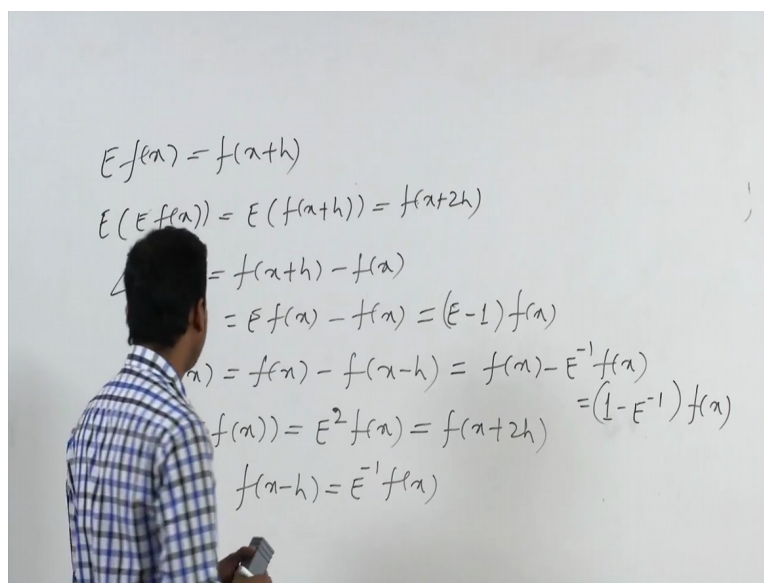 E f(x) = f(x+h)
E(E f(x)) = E(f(x+h)) = f(x+2h)
= f(x+h) - f(x)
= E f(x) - f(x) = (E-1) f(x)
x) = f(x) - f(x-h) = f(x) - E⁻¹ f(x)
= (1-E⁻¹) f(x)
f(x)) = E² f(x) = f(x+2h)
f(x-h) = E⁻¹ f(x)